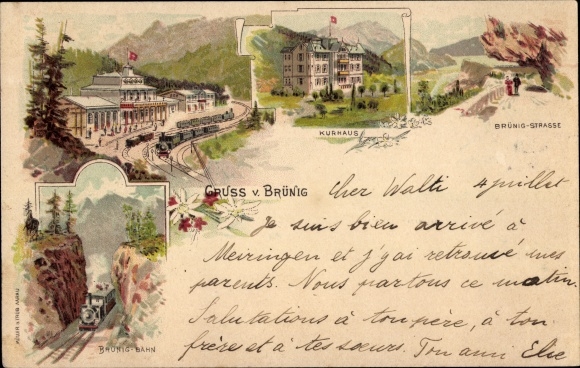 KURHAUS
BRÜNIG-STRASSE
GRUSS V. BRÜNIG
Cher Walti 4 juillet
Je suis bien arrivé à
Meiringen et j'y ai retrouvé mes
parents. Nous partons ce matin.
Salutations à ton père, à ton
frère et à tes soeurs. Ton ami Elie
BRÜNIG-BAHN